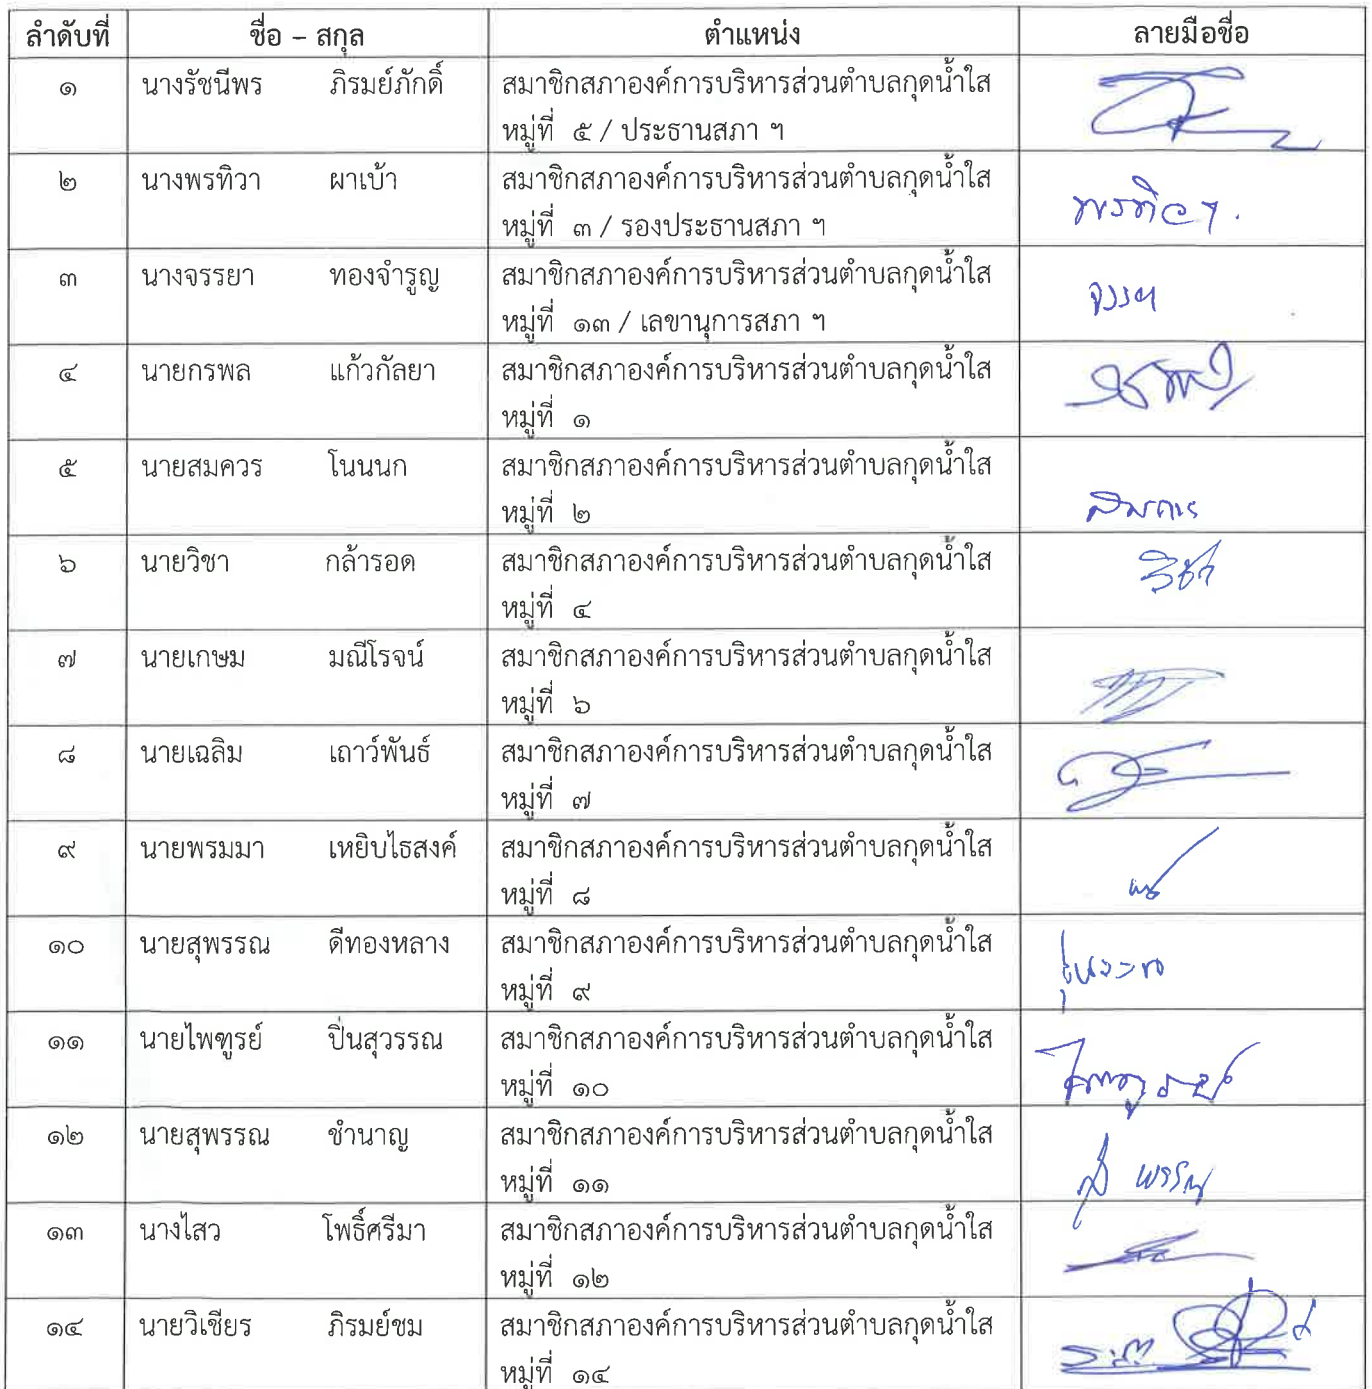 ลำดับที่ ชื่อ – สกุล ตำแหน่ง ลายมือชื่อ
๑ นางรัชนีพร ภิรมย์ภักดิ์ สมาชิกสภาองค์การบริหารส่วนตำบลกุดน้ำใส
หมู่ที่ ๕ / ประธานสภา ฯ
๒ นางพรทิวา ผาเบ้า สมาชิกสภาองค์การบริหารส่วนตำบลกุดน้ำใส
หมู่ที่ ๓ / รองประธานสภา ฯ พรทิวา.
๓ นางจรรยา ทองจำรูญ สมาชิกสภาองค์การบริหารส่วนตำบลกุดน้ำใส
หมู่ที่ ๑๓ / เลขานุการสภา ฯ จรรยา
๔ นายกรพล แก้วกัลยา สมาชิกสภาองค์การบริหารส่วนตำบลกุดน้ำใส
หมู่ที่ ๑
๕ นายสมควร โนนนก สมาชิกสภาองค์การบริหารส่วนตำบลกุดน้ำใส
หมู่ที่ ๒ สมควร
๖ นายวิชา กล้ารอด สมาชิกสภาองค์การบริหารส่วนตำบลกุดน้ำใส วิชา
หมู่ที่ ๔
๗ นายเกษม มณีโรจน์ สมาชิกสภาองค์การบริหารส่วนตำบลกุดน้ำใส
หมู่ที่ ๖
๘ นายเฉลิม เถาว์พันธ์ สมาชิกสภาองค์การบริหารส่วนตำบลกุดน้ำใส
หมู่ที่ ๗
๙ นายพรมมา เหยิบไธสงค์ สมาชิกสภาองค์การบริหารส่วนตำบลกุดน้ำใส
หมู่ที่ ๘
๑๐ นายสุพรรณ ดีทองหลาง สมาชิกสภาองค์การบริหารส่วนตำบลกุดน้ำใส
หมู่ที่ ๙
๑๑ นายไพฑูรย์ ปิ่นสุวรรณ สมาชิกสภาองค์การบริหารส่วนตำบลกุดน้ำใส
หมู่ที่ ๑๐ ไพฑูรย์
๑๒ นายสุพรรณ ชำนาญ สมาชิกสภาองค์การบริหารส่วนตำบลกุดน้ำใส
หมู่ที่ ๑๑ สุพรรณ
๑๓ นางไสว โพธิ์ศรีมา สมาชิกสภาองค์การบริหารส่วนตำบลกุดน้ำใส
หมู่ที่ ๑๒
๑๔ นายวิเชียร ภิรมย์ชม สมาชิกสภาองค์การบริหารส่วนตำบลกุดน้ำใส
หมู่ที่ ๑๔